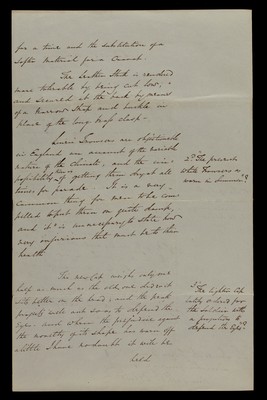 for a time and the substitution of a
softer material for a Cravat.
The Leather Stock is rendered
more tolerable by being cut low;
and secured at the back by means
of a narrow strap and buckle in
place of the long brass clasp.
Linen Trowsers are objectionable
in England, on account of the variable
nature of the Climate, and the im-
possibility of getting them dry at all
times for parade. It is a very
common thing for men to be com-
pelled to put them on quite damp,
and it is unnecessary to state how
very injurious that must be to their
health
2d The present
white Trowsers
worn in Summer?
The new Cap weighs only one
half as much as the old one, does not
sit better on the head, and the peak
projects well and so as to defend the
eyes. and when the prejudice against
the novelty of its shape has worn off
a little I have no doubt it will be
liked
3d The lighter Cap
lately ordered for
the soldiers with
a projection to
defend the Eyes?